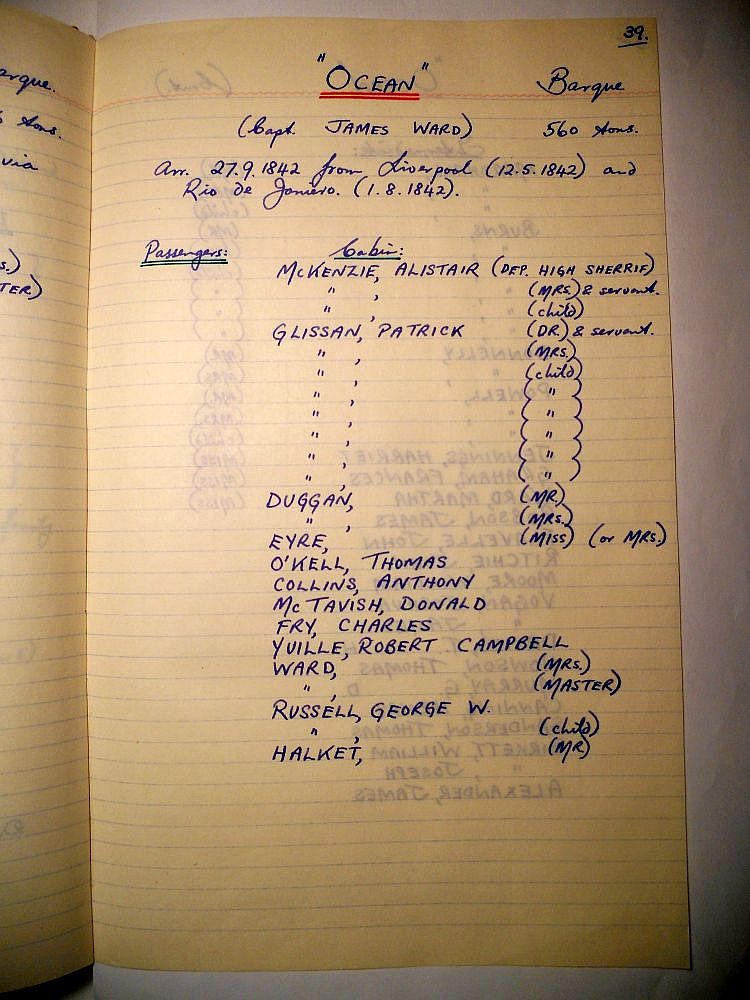 39.
"OCEAN" Barque
(Capt. JAMES WARD) 560 tons.
Arr. 27.9.1842 from Liverpool (12.5.1842) and
Rio de Janiero. (1.8.1842).
Passengers: Cabin:
McKENZIE, ALISTAIR (DEP. HIGH SHERRIF)
" , (MRS.) & servant.
" , (child)
GLISSAN, PATRICK (DR.) & servant.
" , (MRS.)
" , (child)
" , ( " )
" , ( " )
" , ( " )
" , ( " )
" , ( " )
DUGGAN, (MR.)
" , (MRS.)
EYRE, (MISS) (or MRS.)
O'KELL, THOMAS
COLLINS, ANTHONY
McTAVISH, DONALD
FRY, CHARLES
YUILLE, ROBERT CAMPBELL
WARD, (MRS.)
" , (MASTER)
RUSSELL, GEORGE W.
" , (child)
HALKET, (MR)
arque.
tons.
via
s.)
TER)